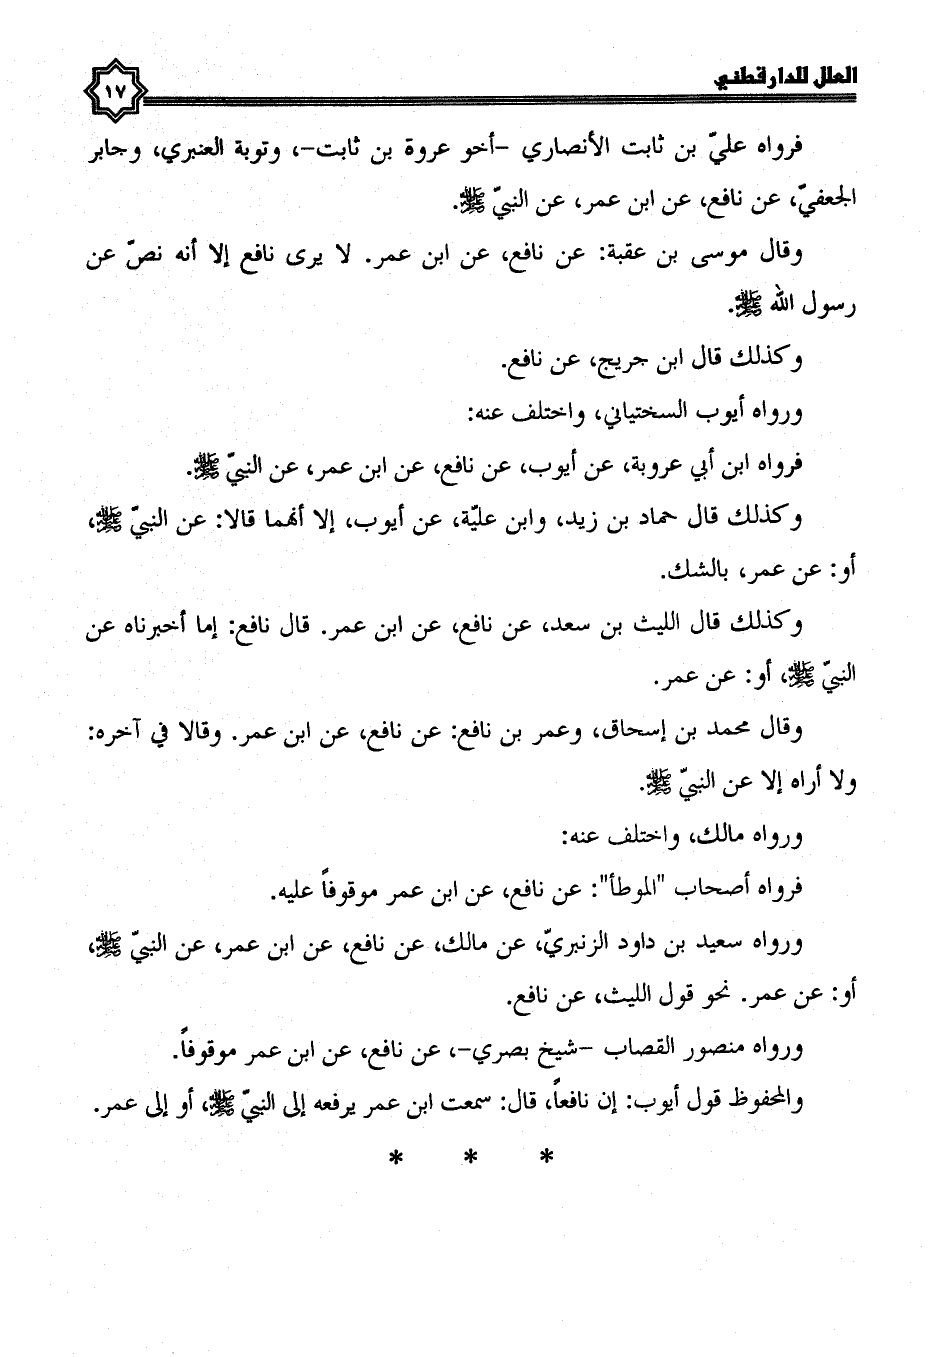 العلل للدارقطني
١٧
فرواه عليّ بن ثابت الأنصاري -أخو عروة بن ثابت-، وتوبة العنبري، وجابر
الجعفيّ، عن نافع، عن ابن عمر، عن النبيّ ﷺ.
وقال موسى بن عقبة: عن نافع، عن ابن عمر. لا يرى نافع إلا أنه نصّ عن
رسول الله ﷺ.
وكذلك قال ابن جريج، عن نافع.
ورواه أيوب السختياني، واختلف عنه:
فرواه ابن أبي عروبة، عن أيوب، عن نافع، عن ابن عمر، عن النبيّ ﷺ.
وكذلك قال حماد بن زيد، وابن عليّة، عن أيوب، إلا أنهما قالا: عن النبيّ ﷺ،
أو: عن عمر، بالشك.
وكذلك قال الليث بن سعد، عن نافع، عن ابن عمر. قال نافع: إما أخبرناه عن
النبيّ ﷺ، أو: عن عمر.
وقال محمد بن إسحاق، وعمر بن نافع: عن نافع، عن ابن عمر. وقالا في آخره:
ولا أراه إلا عن النبيّ ﷺ.
ورواه مالك، واختلف عنه:
فرواه أصحاب "الموطأ": عن نافع، عن ابن عمر موقوفاً عليه.
ورواه سعيد بن داود الزنبريّ، عن مالك، عن نافع، عن ابن عمر، عن النبيّ ﷺ،
أو: عن عمر. نحو قول الليث، عن نافع.
ورواه منصور القصاب -شيخ بصري-، عن نافع، عن ابن عمر موقوفاً.
والمحفوظ قول أيوب: إن نافعاً، قال: سمعت ابن عمر يرفعه إلى النبيّ ﷺ، أو إلى عمر.
* * *